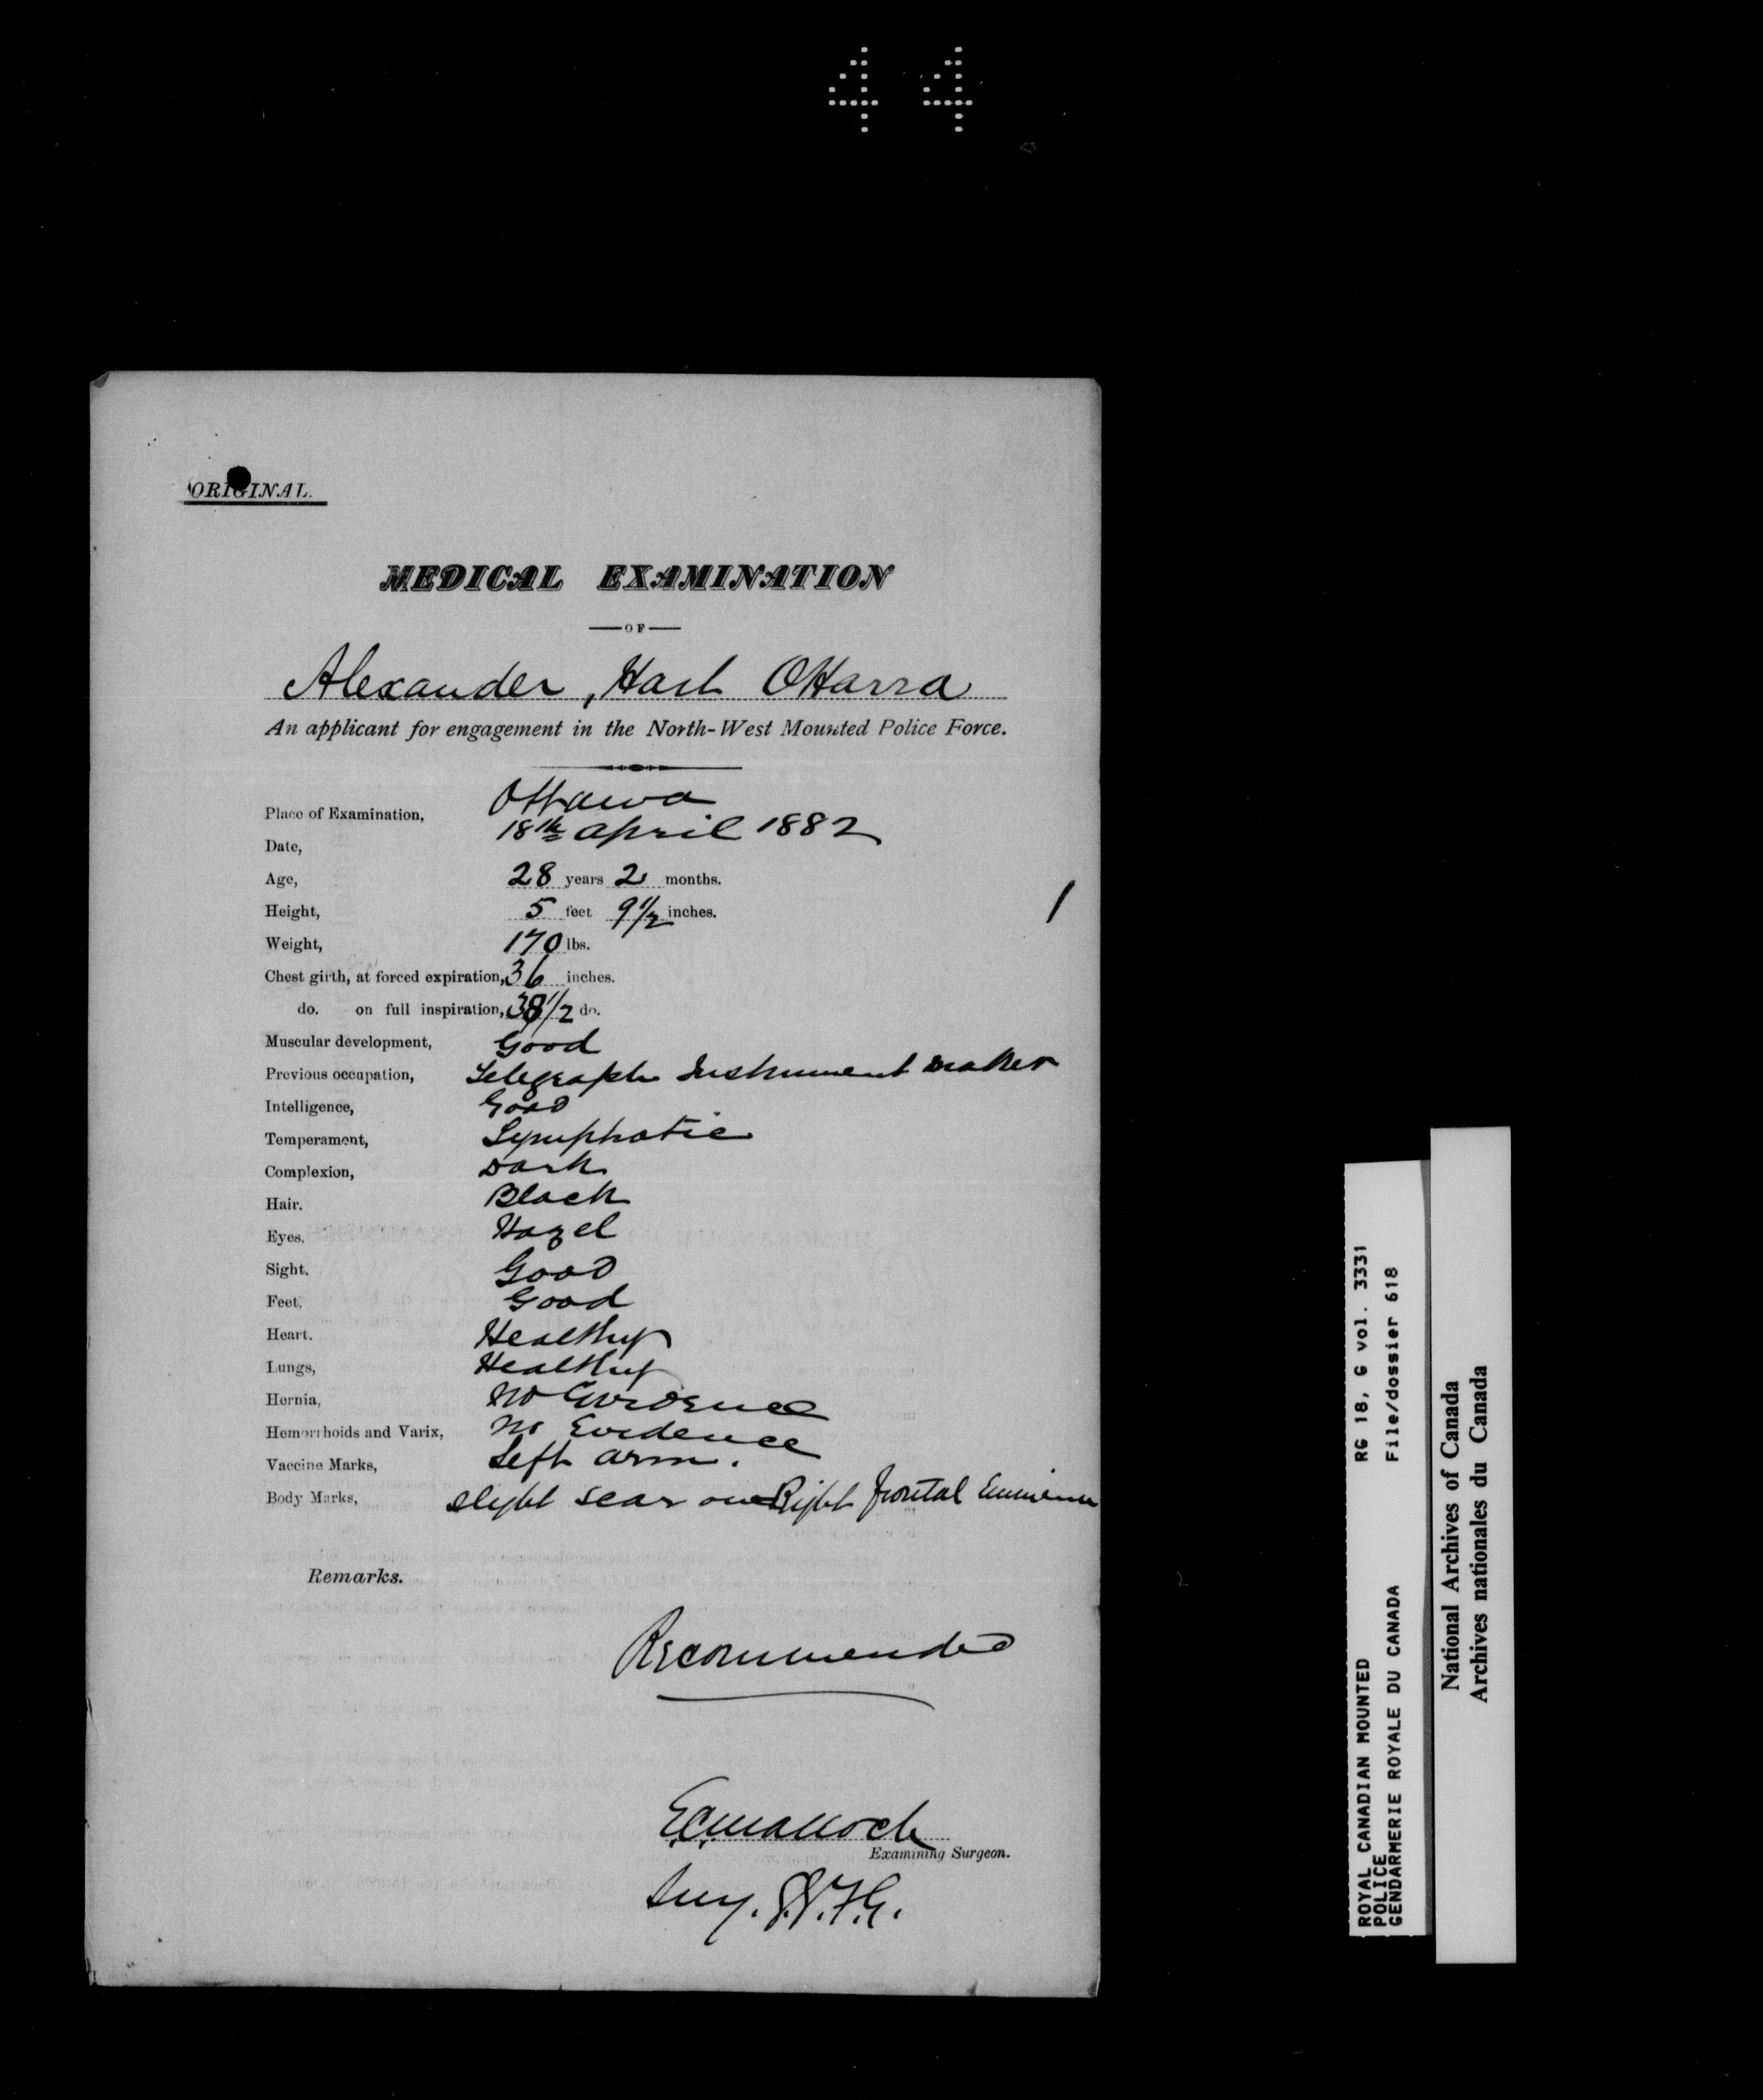 44
ORIGINAL.
MEDICAL EXAMINATION
OF
Alexander, Hart OHarra
An applicant for engagement in the North-West Mounted Police Force.
Place of Examination, Ottawa
Date, 18th april 1882
Age, 28 years 2 months.
Height, 5 feet 9 1/2 inches.
Weight, 170 lbs.
Chest girth, at forced expiration, 36 inches.
do. on full inspiration, 38 1/2 do.
Muscular development, Good
Previous occupation, Telegraph Instrument maker
Intelligence, Good
Temperament, Lymphatic
Complexion, Dark
Hair. Black
Eyes. Hazel
Sight. Good
Feet. Good
Heart. Healthy
Lungs, Healthy
Hernia, No Evidence
Hemorrhoids and Varix, No Evidence
Vaccine Marks, Left arm.
Body Marks, slight scar over Right frontal Eminence
Remarks.
Recommended
E.C. Malloch
Examining Surgeon.
Surg.
ROYAL CANADIAN MOUNTED RG 18, G vol. 3331
POLICE
GENDARMERIE ROYALE DU CANADA File/dossier 618
National Archives of Canada
Archives nationales du Canada